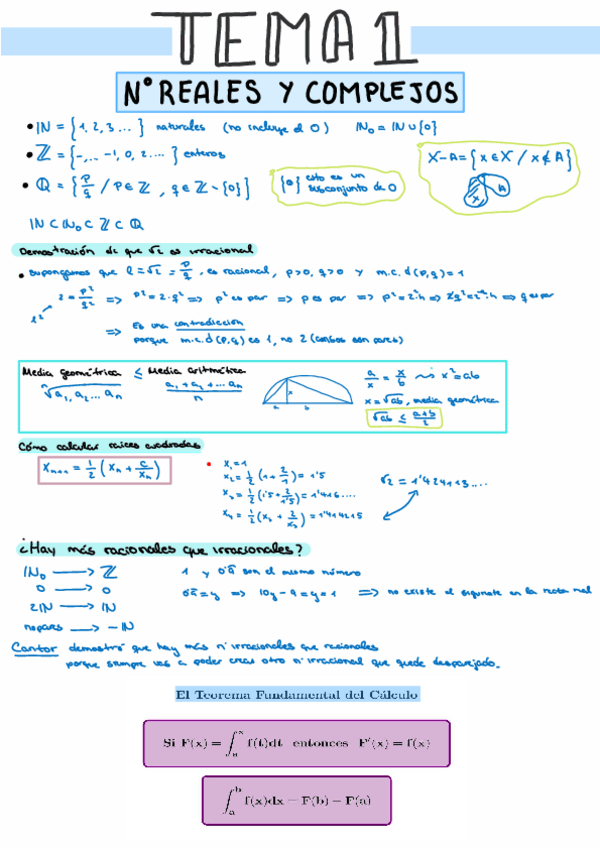 TEMA 1
Nº REALES Y COMPLEJOS
• IN = {1, 2, 3 ...} naturales (no incluye el 0) IN₀ = IN ∪ {0}
• ℤ = {-,.. -1, 0, 2....} enteros
X-A = {x ∈ X / x ∉ A}
• ℚ = {p/q / p ∈ ℤ, q ∈ ℤ - {0}}
{0} esto es un subconjunto de 0
X A
IN ⊂ IN₀ ⊂ ℤ ⊂ ℚ
Demostración de que √2 es irracional
• supongamos que l = √2 = p/q, es racional, p>0, q>0 y m.c.d(p,q)=1
l² 2 = p²/q² => p² = 2·q² => p² es par => p es par => p² = 2²·h => 2q² = 2²·h => q es par
=> Es una contradicción
porque m.c.d(p,q) es 1, no 2 (ambos son pares)
Media geométrica ≤ Media aritmética
ⁿ√a₁, a₂... aₙ a₁ + a₂ + ... aₙ / n
x a b
a/x = x/b ~> x² = ab
x = √ab, media geométrica
√ab ≤ a+b/2
Cómo calcular raices cuadradas
Xₙ₊₁ = 1/2 (Xₙ + c/Xₙ)
• X₁ = 1
X₂ = 1/2 (1 + 2/1) = 1'5
X₃ = 1/2 (1'5 + 2/1'5) = 1'416....
X₄ = 1/2 (X₃ + 2/X₃) = 1'414215
√2 = 1'424113....
¿Hay más racionales que irracionales?
IN₀ → ℤ
0 → 0
2IN → IN
nopares → -IN
1 y 0'9̄ son el mismo número
0'9̄ = y => 10y - 9 = y = 1 => no existe el siguiente en la recta real
Cantor demostró que hay más nº irracionales que racionales
porque siempre vas a poder crear otro nº irracional que quede desparejado.
El Teorema Fundamental del Cálculo
Si F(x) = ∫ₐˣ f(t)dt entonces F'(x) = f(x)
∫ₐᵇ f(x)dx = F(b) − F(a)